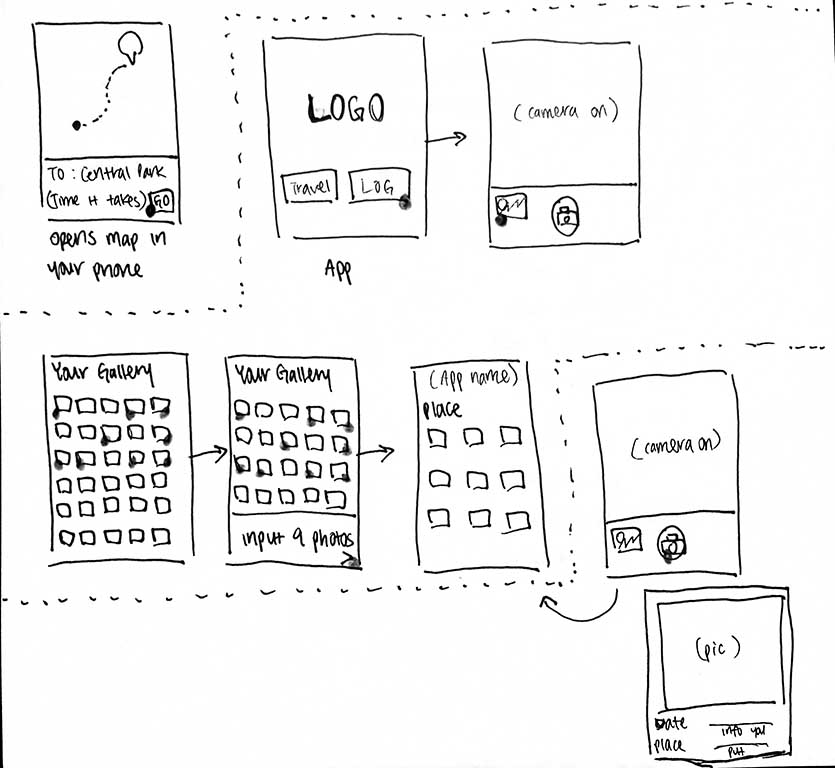 TO : Central Park
(Time it takes) GO
opens map in
your phone
LOGO
Travel
LOG
App
(camera on)
Your Gallery
Your Gallery
input 9 photos
(App name)
place
(camera on)
(pic)
Date
place
info you
put